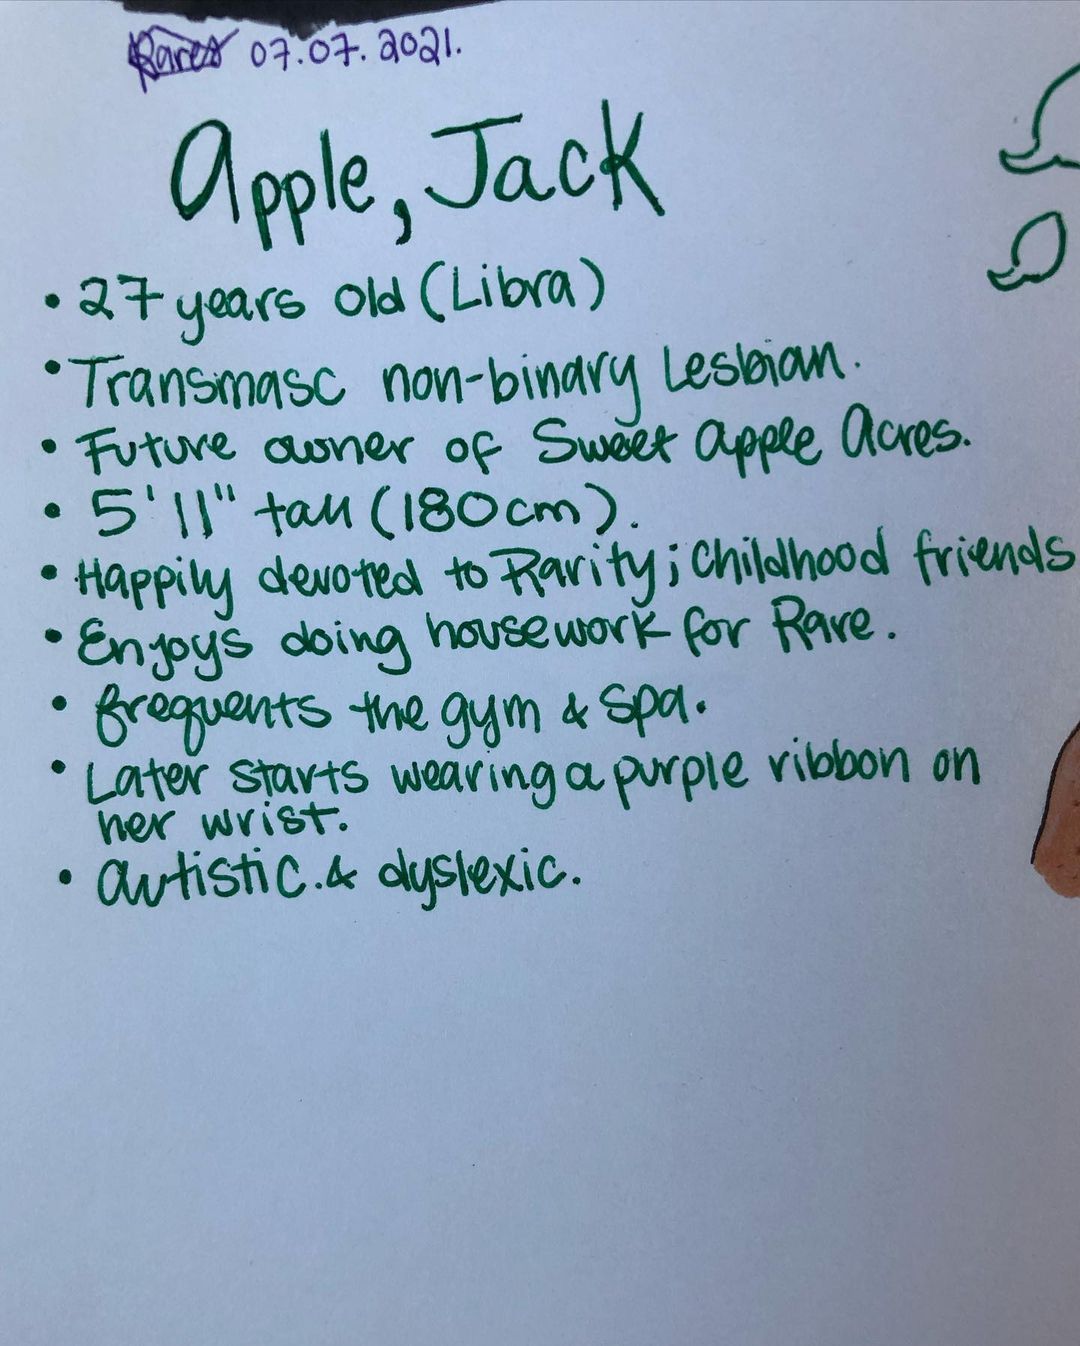 Rares 07.07.2021.
Apple, Jack
• 27 years old (Libra)
• Transmasc non-binary Lesbian.
• Future owner of Sweet apple Acres.
• 5'11" tall (180cm).
• Happily devoted to Rarity; Childhood friends
• Enjoys doing housework for Rare.
• frequents the gym & spa.
• Later starts wearing a purple ribbon on
her wrist.
• autistic. & dyslexic.